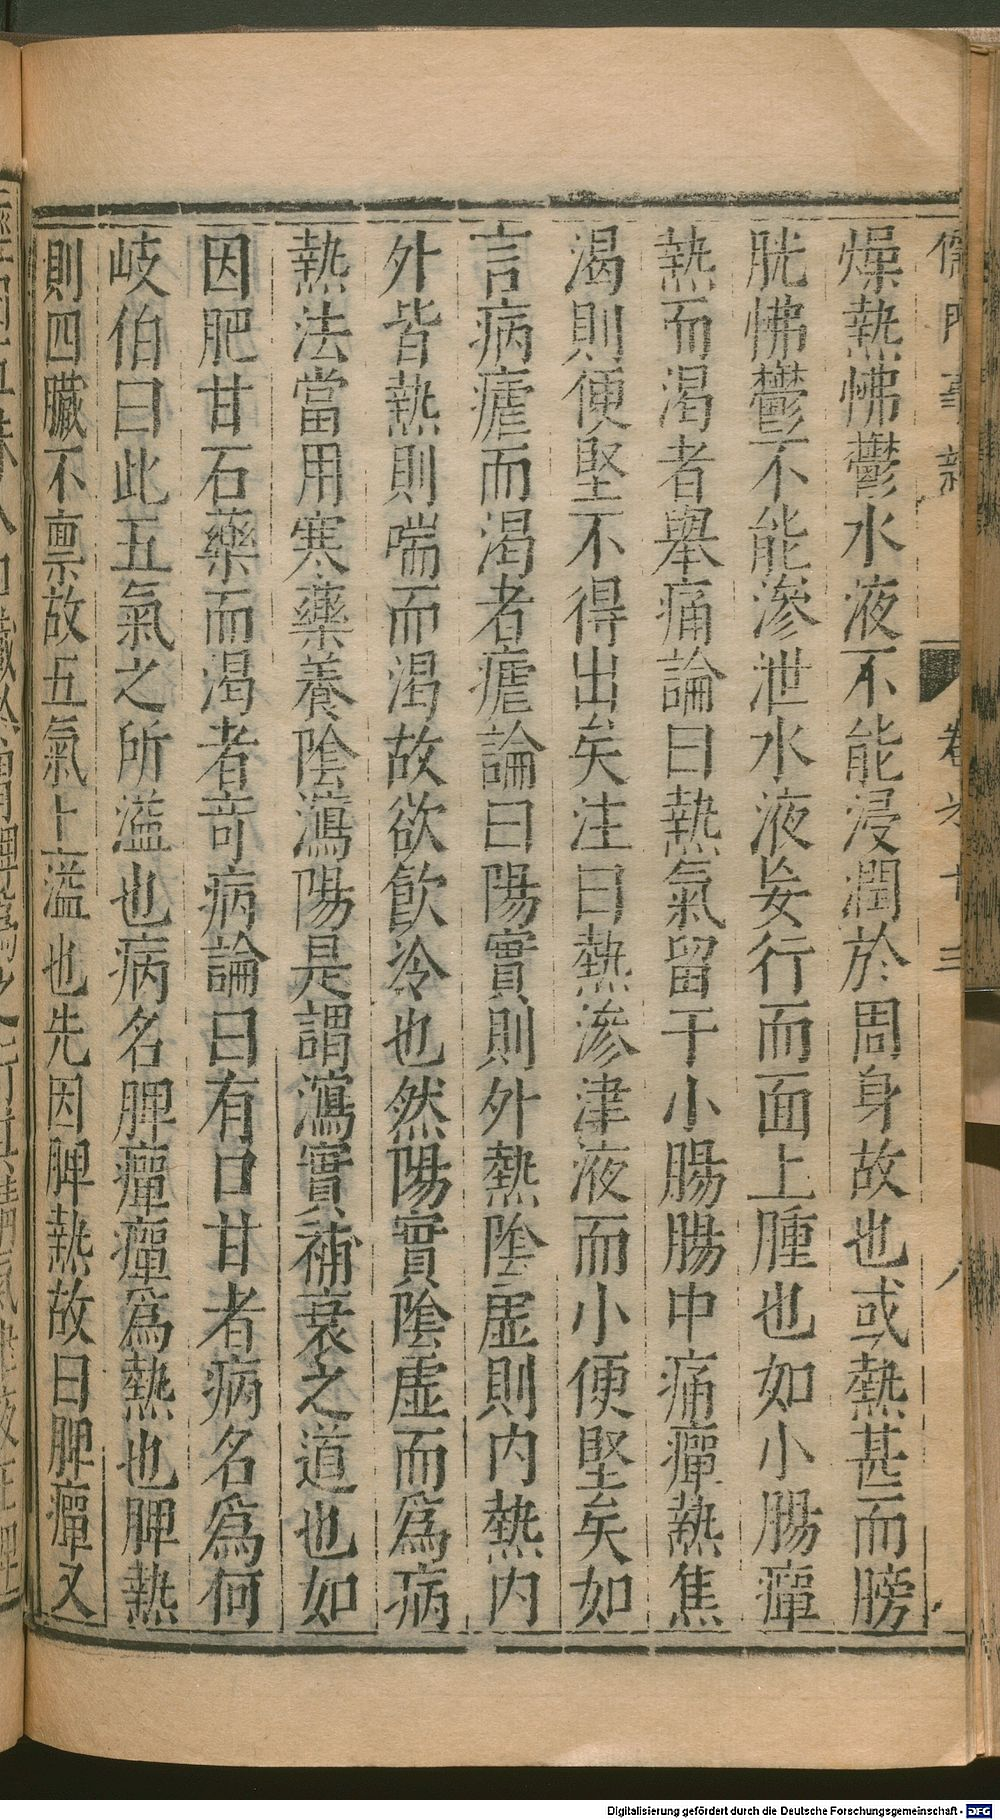 儒門事親 卷之十三 八
燥熱怫鬱水液不能浸潤於周身故也或熱甚而膀
胱怫鬱不能滲泄水液妄行而面上腫也如小腸癉
熱而渴者舉痛論曰熱氣留于小腸腸中痛癉熱焦
渴則便堅不得出矣注曰熱滲津液而小便堅矣如
言病瘧而渴者瘧論曰陽實則外熱陰虛則内熱内
外皆熱則喘而渴故欲飲冷也然陽實陰虛而爲病
熱法當用寒藥養陰瀉陽是謂瀉實補衰之道也如
因肥甘石藥而渴者奇病論曰有口甘者病名爲何
岐伯曰此五氣之所溢也病名脾癉癉爲熱也脾熱
則四臟不禀故五氣上溢也先因脾熱故曰脾癉又
Digitalisierung gefördert durch die Deutsche Forschungsgemeinschaft - DFG